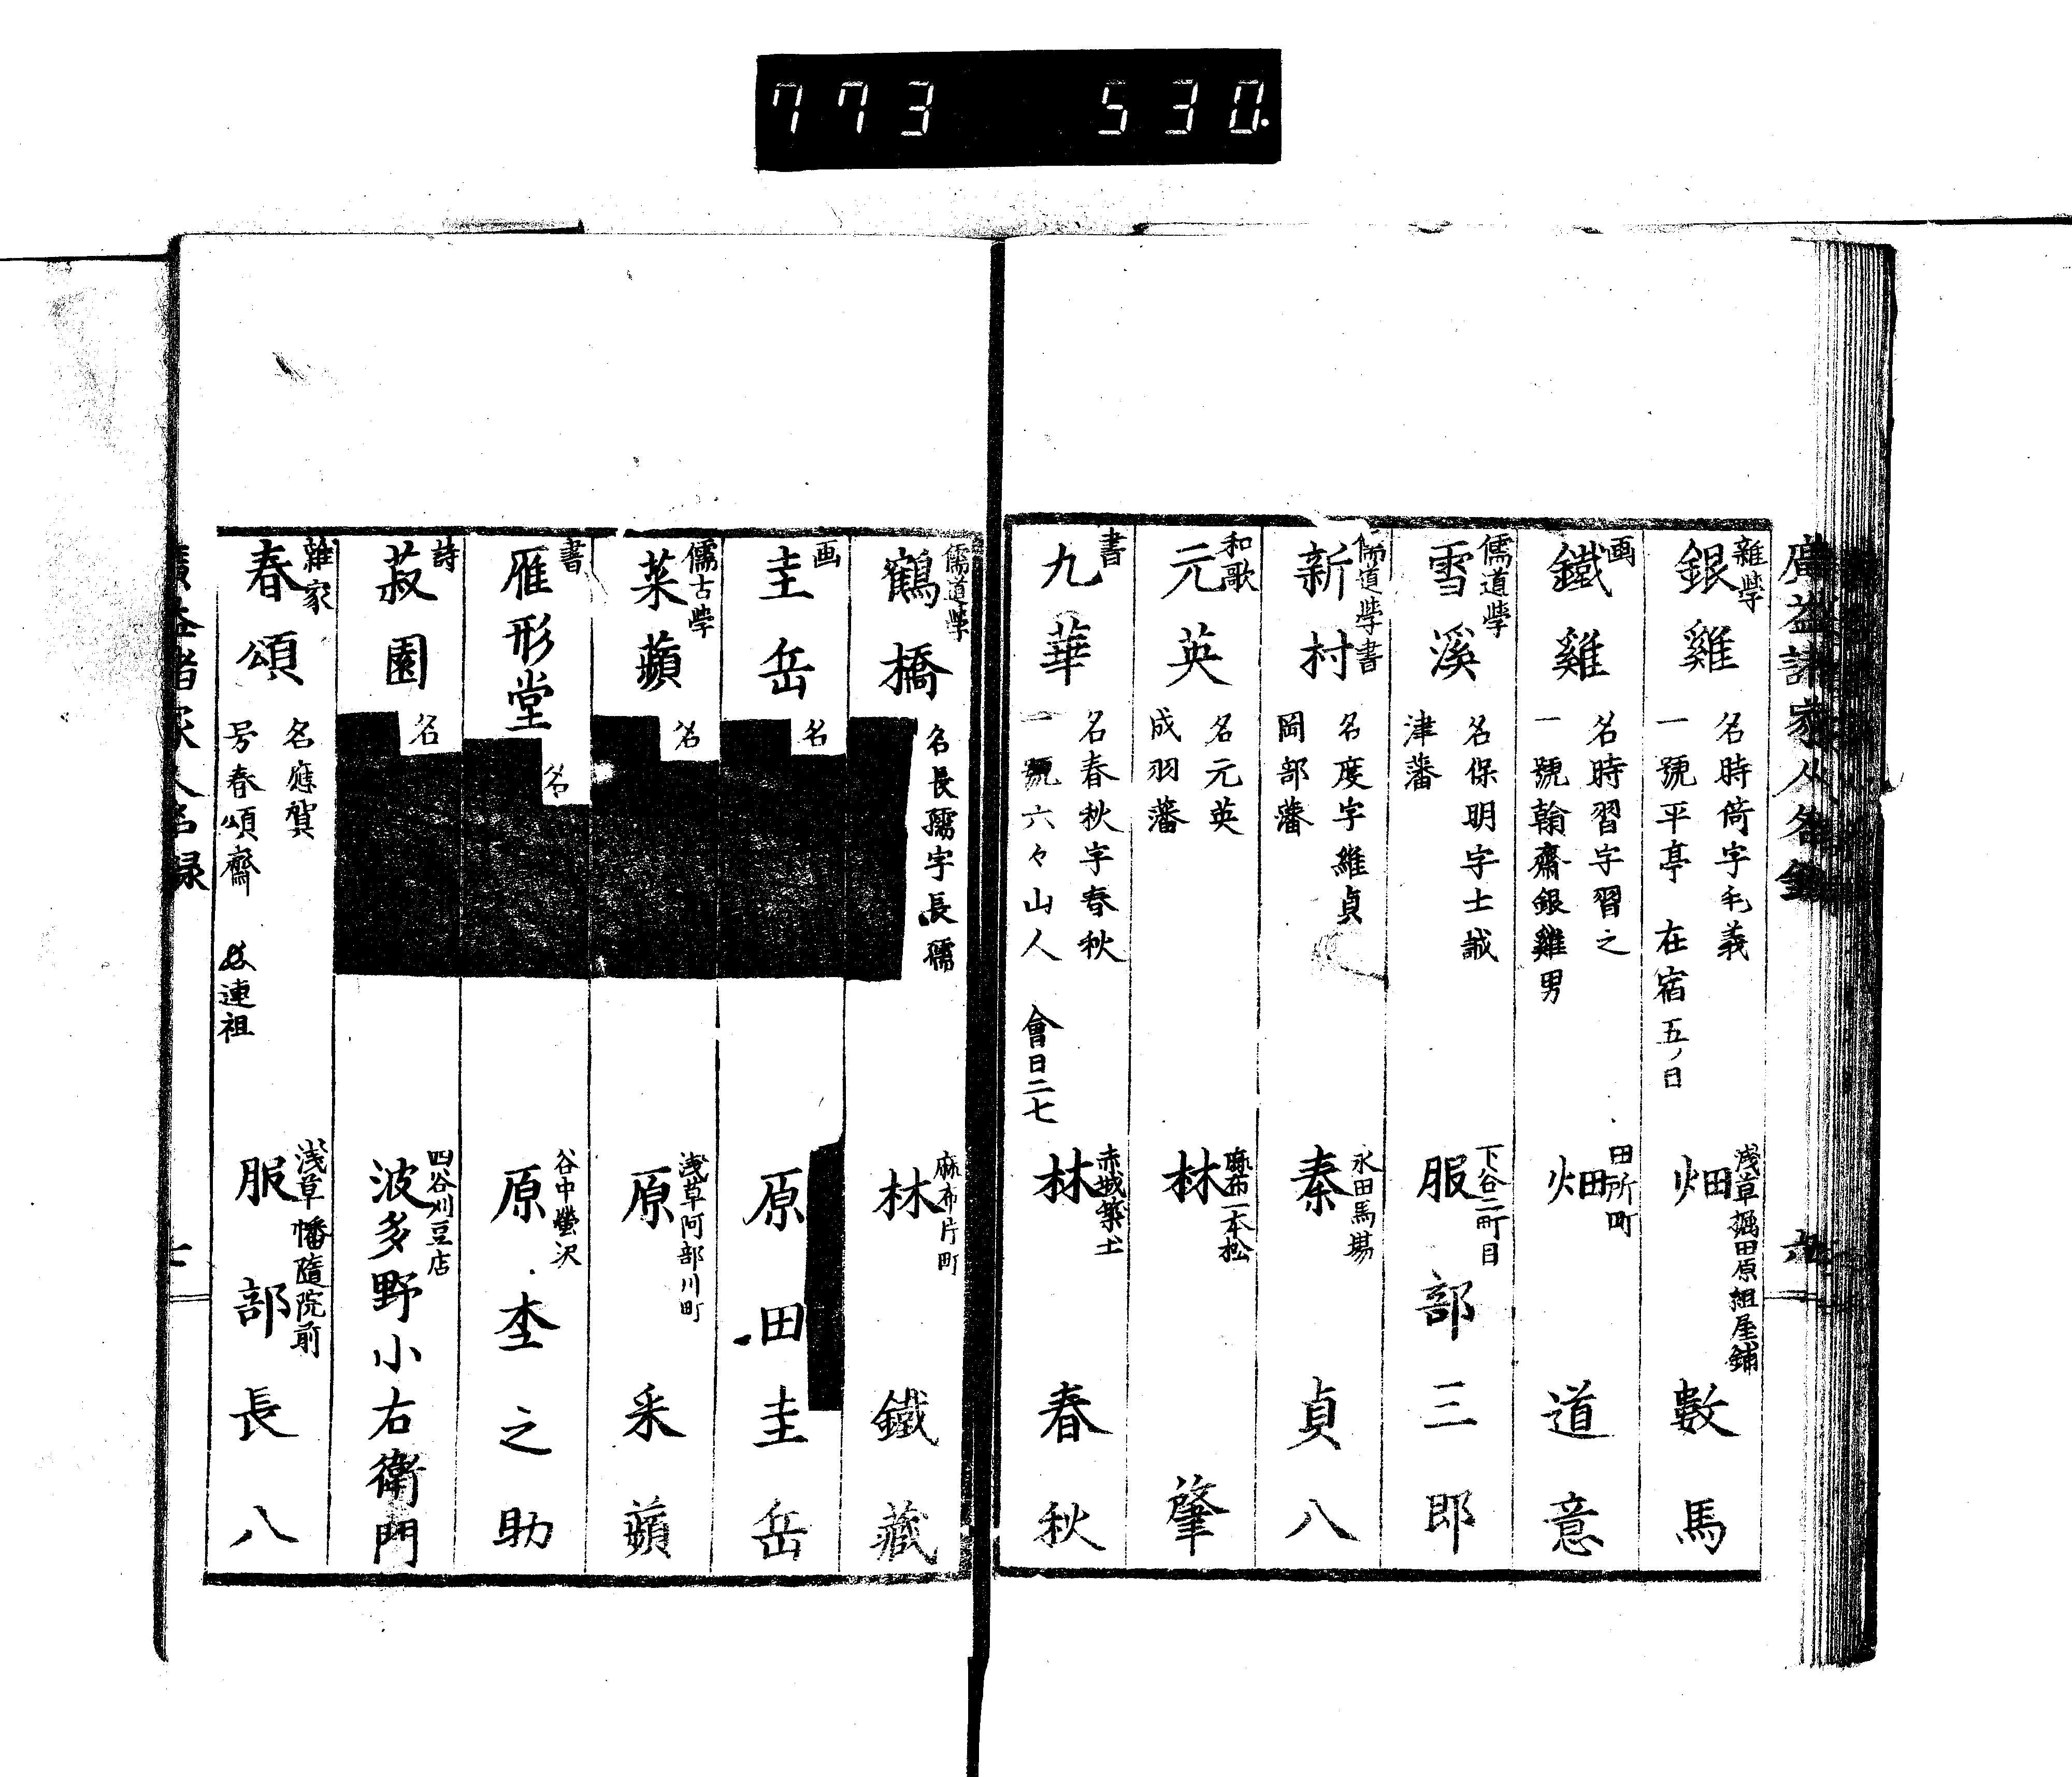 773 530.
廣益諸家人名録
雜学
銀雞
名時倚字毛義
一號平亭 在宿五ノ日
浅草堀田原組屋鋪
畑数馬
画
鐵雞
名時習字習之
一號翰齋銀雞男
田所町
畑道意
儒道学
雪溪
名保明字士誠
津藩
下谷二町目
服部三郎
儒道学書
新村
名度字維貞
岡部藩
永田馬場
秦貞八
和歌
元英
名元英
成羽藩
麻布一本松
林肇
書
九華
名春秋字春秋
一號六々山人 會日二七
赤城築土
林春秋
儒道学
鶴橋
名長孺字長孺
麻布片町
林鐵藏
画
圭岳
名
原田圭岳
儒古学
菜蘋
名
浅草阿部川町
原采蘋
書
雁形堂
名
谷中螢沢
原杢之助
詩
菽園
名
四谷刈豆店
波多野小右衛門
雜家
春頌
名應賀
号春頌齋 連祖
浅草幡隨院前
服部長八
廣益諸家人名録
七